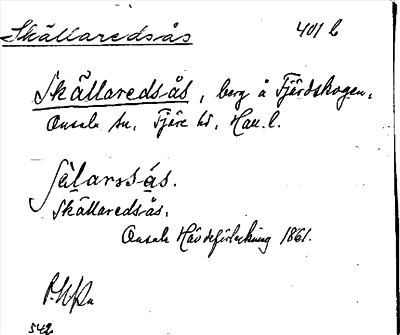 Skällaredsås 401 b
Skällaredsås, berg å Fjärdskogen,
Onsala sn, Fjäre hd, Hall. l.
Skällaredsås.
Onsala Hävdeförteckning 1861.
542